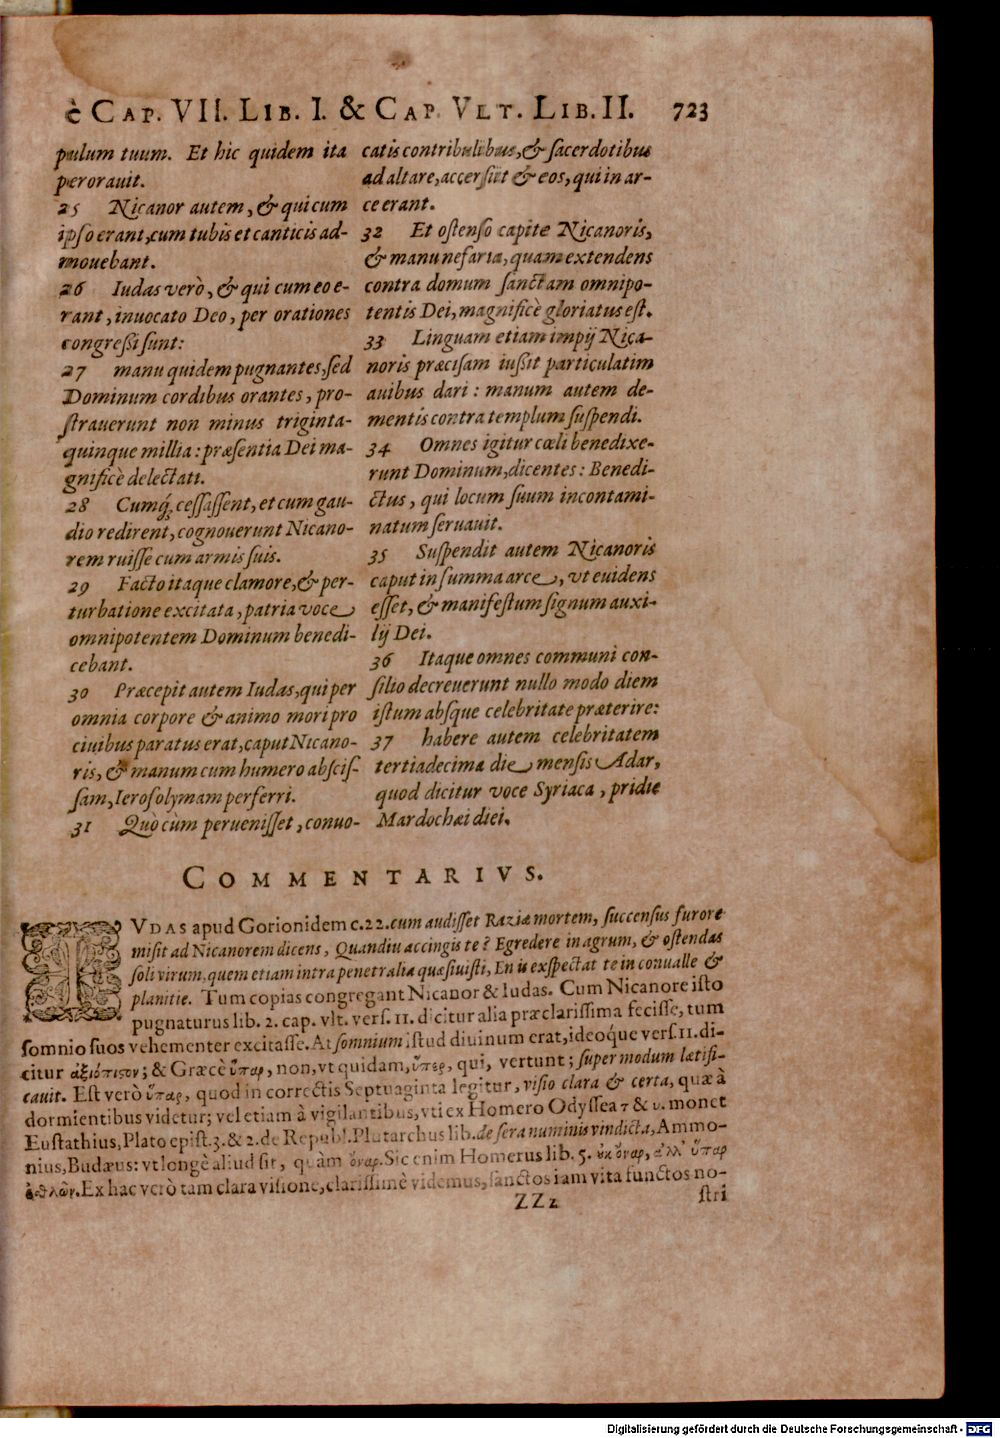 è CAP. VII. LIB. I. & CAP. VLT. LIB. II. 723
pulum tuum. Et hic quidem ita
perorauit.
25 Nicanor autem, & qui cum
ipso erant, cum tubis et canticis ad-
mouebant.
26 Iudas verò, & qui cum eo e-
rant, inuocato Deo, per orationes
congreßi sunt:
27 manu quidem pugnantes, sed
Dominum cordibus orantes, pro-
strauerunt non minus triginta-
quinque millia: præsentia Dei ma-
gnificè delectati.
28 Cumq́; cessassent, et cum gau-
dio redirent, cognouerunt Nicano-
rem ruisse cum armis suis.
29 Facto itaque clamore, & per-
turbatione excitata, patria voce
omnipotentem Dominum benedi-
cebant.
30 Præcepit autem Iudas, qui per
omnia corpore & animo mori pro
ciuibus paratus erat, caput Nicano-
ris, & manum cum humero abscis-
sam, Ierosolymam perferri.
31 Quò cùm peruenisset, conuo-
catis contribulibus, & sacerdotibus
ad altare, accersiit & eos, qui in ar-
ce erant.
32 Et ostenso capite Nicanoris,
& manu nefaria, quam extendens
contra domum sanctam omnipo-
tentis Dei, magnificè gloriatus est.
33 Linguam etiam impij Nica-
noris præcisam iußit particulatim
auibus dari: manum autem de-
mentis contra templum suspendi.
34 Omnes igitur cœli benedixe-
runt Dominum, dicentes: Benedi-
ctus, qui locum suum incontami-
natum seruauit.
35 Suspendit autem Nicanoris
caput in summa arce, vt euidens
esset, & manifestum signum auxi-
lij Dei.
36 Itaque omnes communi con-
silio decreuerunt nullo modo diem
istum absque celebritate præterire:
37 habere autem celebritatem
tertiadecima die mensis Adar,
quod dicitur voce Syriaca, pridie
Mardochæi diei.
COMMENTARIVS.
IVDAS apud Gorionidem c. 22. cum audisset Raziæ mortem, succensus furore
misit ad Nicanorem dicens, Quandiu accingis te? Egredere in agrum, & ostendas
soli virum, quem etiam intra penetralia quæsiuisti, En is exspectat te in conualle &
planitie. Tum copias congregant Nicanor & Iudas. Cum Nicanore isto
pugnaturus lib. 2. cap. vlt. vers. 11. dicitur alia præclarissima fecisse, tum
somnio suos vehementer excitasse. At somnium istud diuinum erat, ideoque vers. 11. di-
citur ἀξιόπιστον; & Græcè ὕπαρ, non, vt quidam, ὕπερ, qui, vertunt; super modum lætifi-
cauit. Est verò ὕπαρ, quod in correctis Septuaginta legitur, visio clara & certa, quæ à
dormientibus videtur; vel etiam à vigilantibus, vti ex Homero Odyssea τ & υ. monet
Eustathius, Plato epist. 3. & 2. de Republ. Plutarchus lib. de sera numinis vindicta, Ammo-
nius, Budæus: vt longè aliud sit, quàm ὄναρ. Sic enim Homerus lib. 5. ἐκ ὄναρ, ἀλλ' ὕπαρ
ἐσθλὸν. Ex hac verò tam clara visione, clarissimè videmus, sanctos iam vita functos no-
ZZz stri
Digitalisierung gefördert durch die Deutsche Forschungsgemeinschaft - DFG